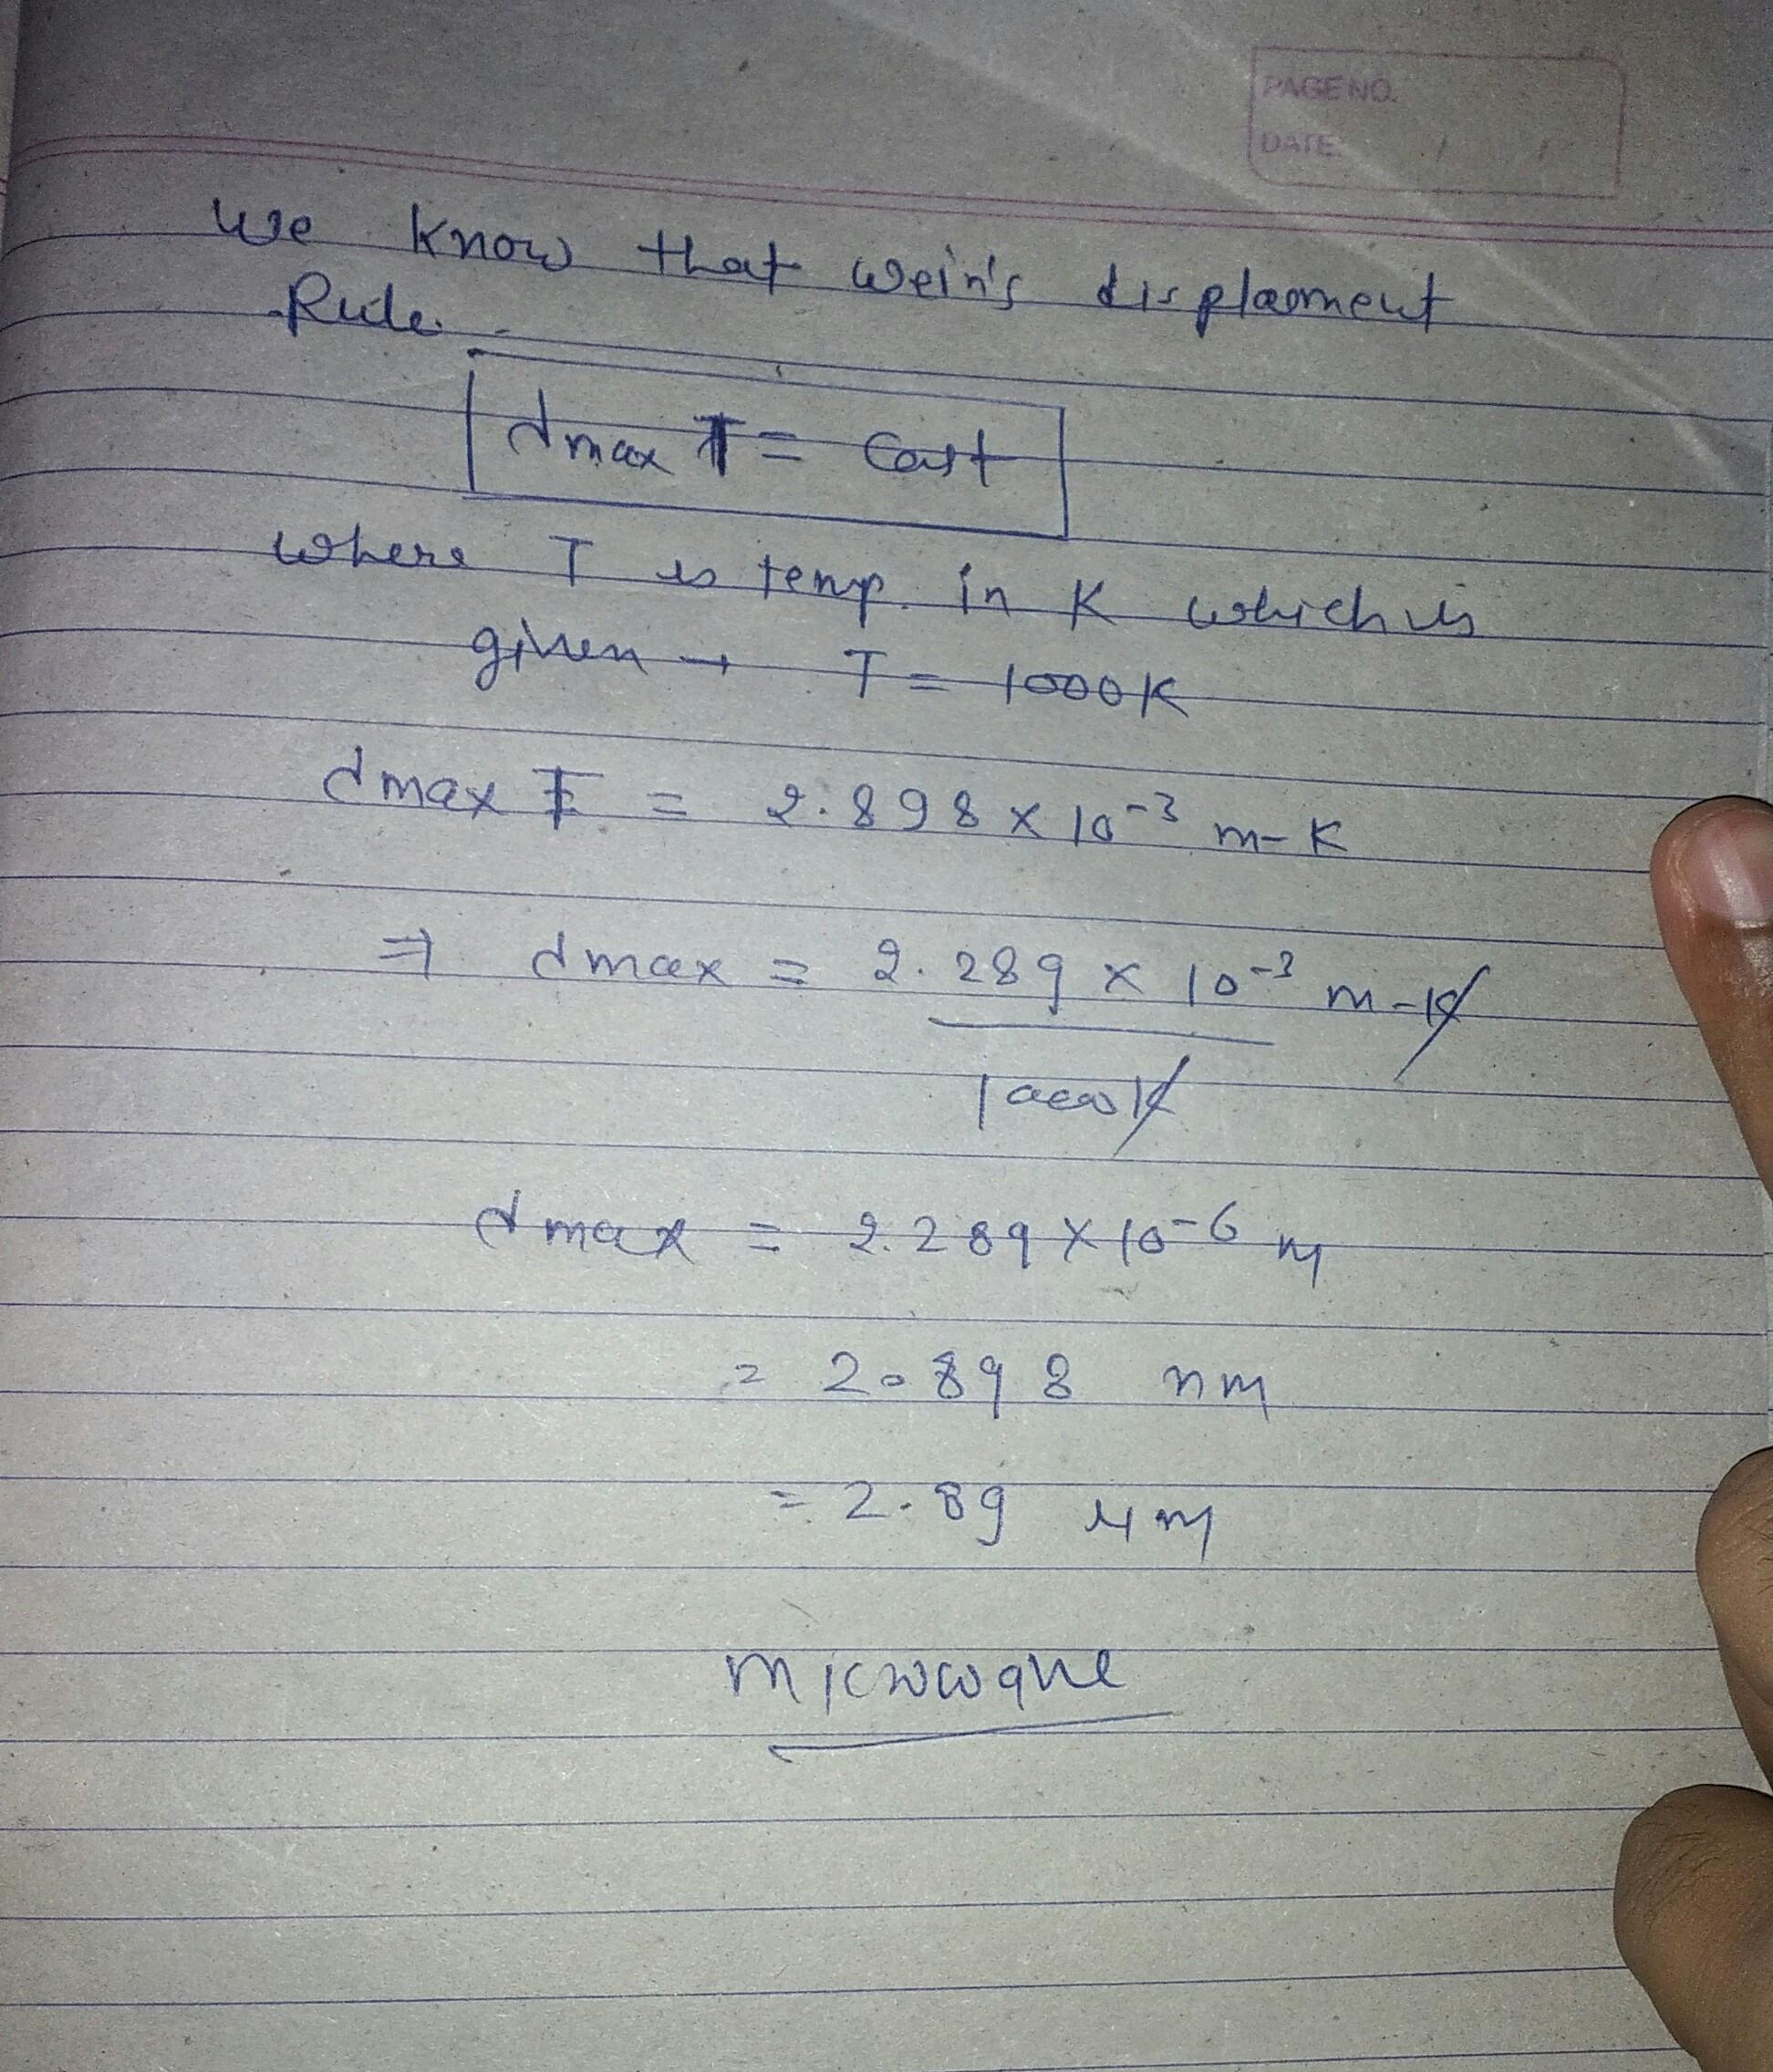 PAGE NO.
DATE: / /
we know that wein's displament
Rule.
dmax T = Cast
where T is temp. in K which is
given → T = 1000K
dmax T = 2.898 x 10-3 m-K
⇒ dmax = 2.289 x 10-3 m-K
1000K
dmax = 2.289 x 10-6 m
= 2.898 nm
= 2.89 μm
microwave